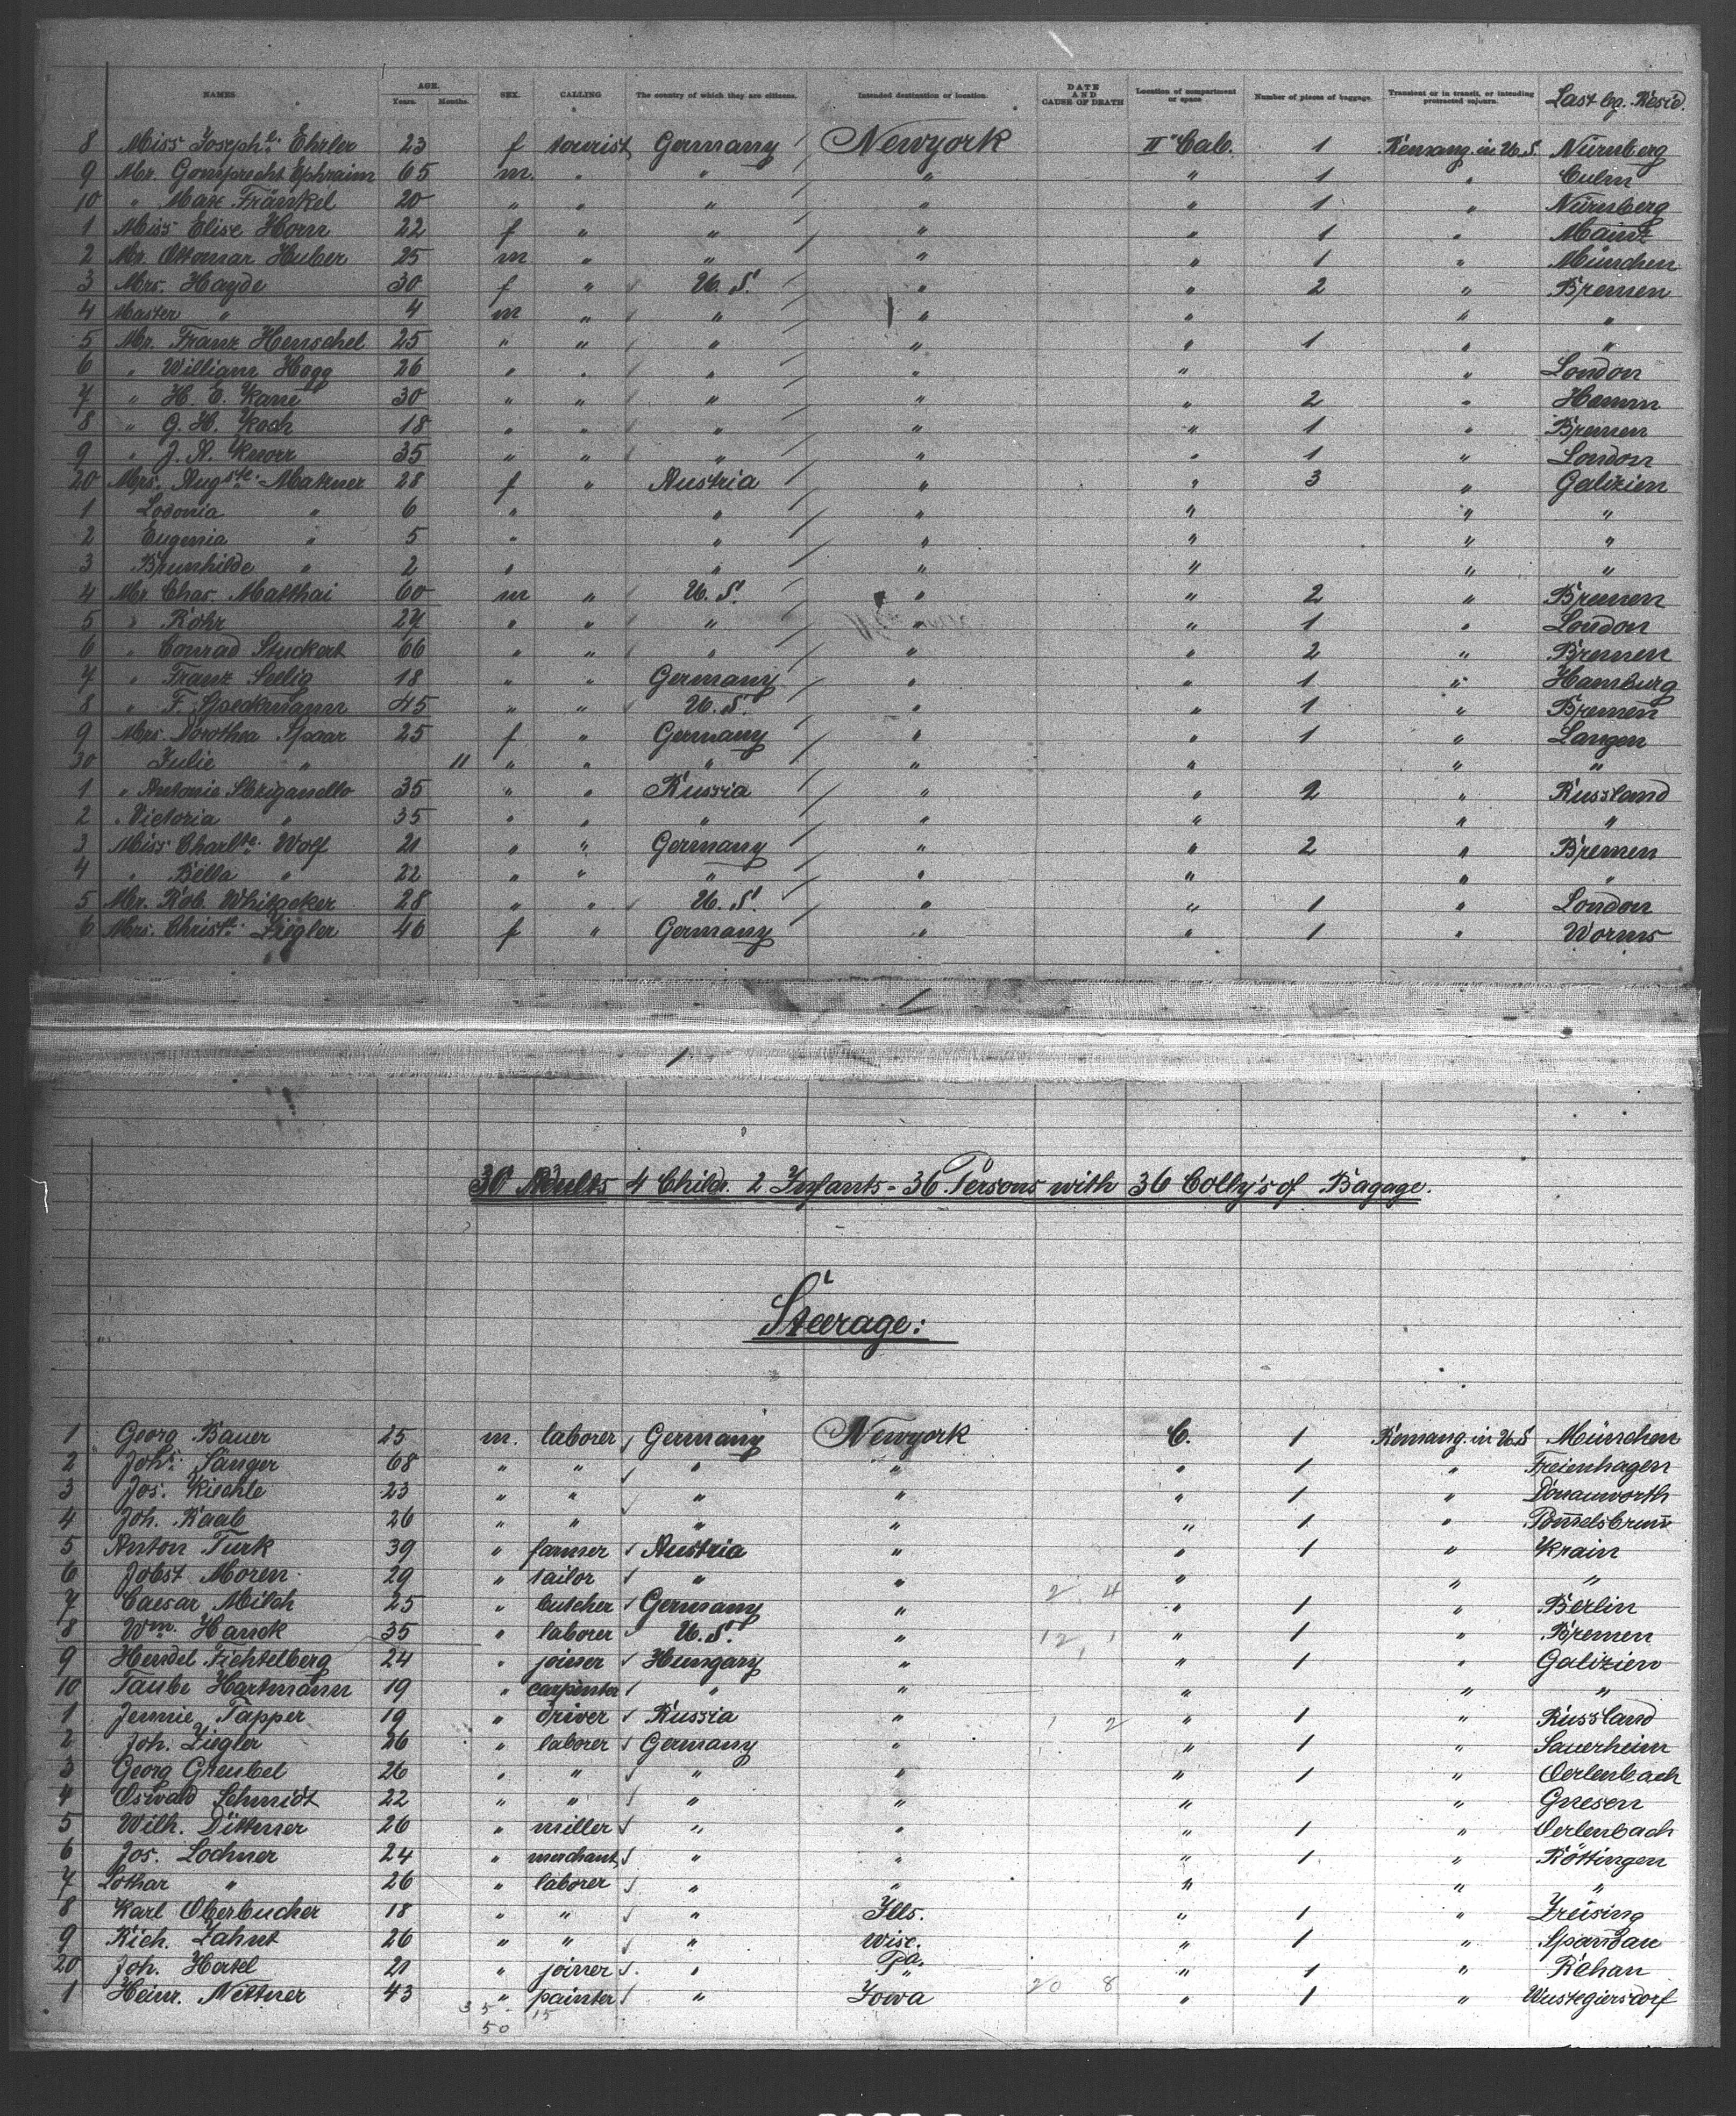 NAMES AGE. Years. Months. SEX. CALLING The country of which they are citizens. Intended destination or location. DATE AND CAUSE OF DEATH Location of compartment or space Number of pieces of baggage. Transient or in transit, or intending protracted sojourn. Last leg. Resid.
8 Miss Joseph.e Ehrler 23 f tourist Germany Newyork II Cab. 1 Remang. in U.S. Nürnberg
9 Mr. Gomprecht Ephraim 65 m. " " " " 1 " Culm
10 " Max Fränkel 20 " " " " " 1 " Nürnberg
1 Miss Elise Horn 22 f " " " " 1 " Mainz
2 Mr. Ottomar Huber 25 m " " " " 1 " München
3 Mrs. Hayde 30 f " U.S. " " 2 " Bremen
4 Master " 4 m " " " " " "
5 Mr. Franz Henschel 25 " " " " " 1 " "
6 " William Hogg 26 " " " " " " London
7 " H. E. Kane 30 " " " " " 2 " Hamm
8 " G. H. Koch 18 " " " " " 1 " Bremen
9 " J. A. Knorr 35 " " " " " 1 " London
20 Mrs. Aug.ste Matzner 28 f " Austria " " 3 " Galizien
1 Lodonia " 6 " " " " " "
2 Eugenia " 5 " " " " " "
3 Brunhilde " 2 " " " " " "
4 Mr. Chas. Matthai 60 m " U.S. " " 2 " Bremen
5 " Rohr 27 " " " " " 1 " London
6 " Conrad Stuckert 66 " " " " " 2 " Bremen
7 " Franz Sellig 18 " " Germany " " 1 " Hamburg
8 " F. Speckmann 45 " " U.S. " " 1 " Bremen
9 Mrs. Dorothea Spaar 25 f " Germany " " 1 " Langen
30 Julie " 11 " " " " " " "
1 " Antonie Sziganello 35 " " Russia " " 2 " Russland
2 " Victoria " 35 " " " " " " "
3 Miss Charl.te Wolf 21 " " Germany " " 2 " Bremen
4 " Bella " 22 " " " " " " "
5 Mr. Rob. Whitacker 28 " " U.S. " " 1 " London
6 Mrs. Christ. Ziegler 46 f " Germany " " 1 " Worms
30 Adults 4 Childr. 2 Infants - 36 Persons with 36 Colly's of Bagage.
Steerage:
1 Georg Bauer 25 m. laborer Germany Newyork C. 1 Remang. in U.S Münschen
2 Joh. Sänger 68 " " " " " 1 " Freienhagen
3 Jos. Kiechle 23 " " " " " 1 " Donauworth
4 Joh. Raab 26 " " " " " 1 "
5 Anton Turk 39 " farmer Austria " " 1 " Krain
6 Jobst Moren 29 " tailor " " 2 4 " " "
7 Caesar Milch 25 " butcher Germany " " 1 " Berlin
8 Wm. Hanck 35 " laborer U.S. " 12 1 " 1 " Bremen
9 Hendel Fichtelberg 24 " joiner Hungary " " 1 " Galizien
10 Taube Hartmann 19 " carpenter " " " " "
1 Jennie Tapper 19 " driver Russia " 1 2 " 1 " Russland
2 Joh. Ziegler 26 " laborer Germany " " 1 " Sauerheim
3 Georg Greubel 26 " " " " " 1 " Oerlenbach
4 Oswald Schmidt 22 " " " " " " Gnesen
5 Wilh. Dittmer 26 " miller " " " 1 " Oerlenbach
6 Jos. Lochner 24 " merchant " " " 1 " Röttingen
7 Lothar " 26 " laborer " " " " "
8 Karl Oberbucher 18 " " " Ills. " 1 " Freising
9 Rich. Zahnt 26 " " " Wisc. " 1 " Spandau
20 Joh. Hertel 21 " joiner " Pa. " 1 " Rehau
1 Heinr. Nittner 43 " painter " Iowa 20 8 " 1 " Wustegiersdorf
35 15
50